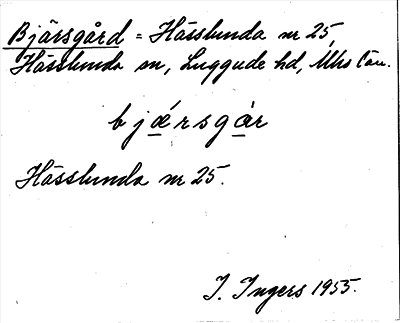 Bjärsgård = Hässlunda nr 25,
Hässlunda sn, Luggude hd, Mhs län.
bjǽrsgȧr
Hässlunda nr 25.
I. Ingers 1955.